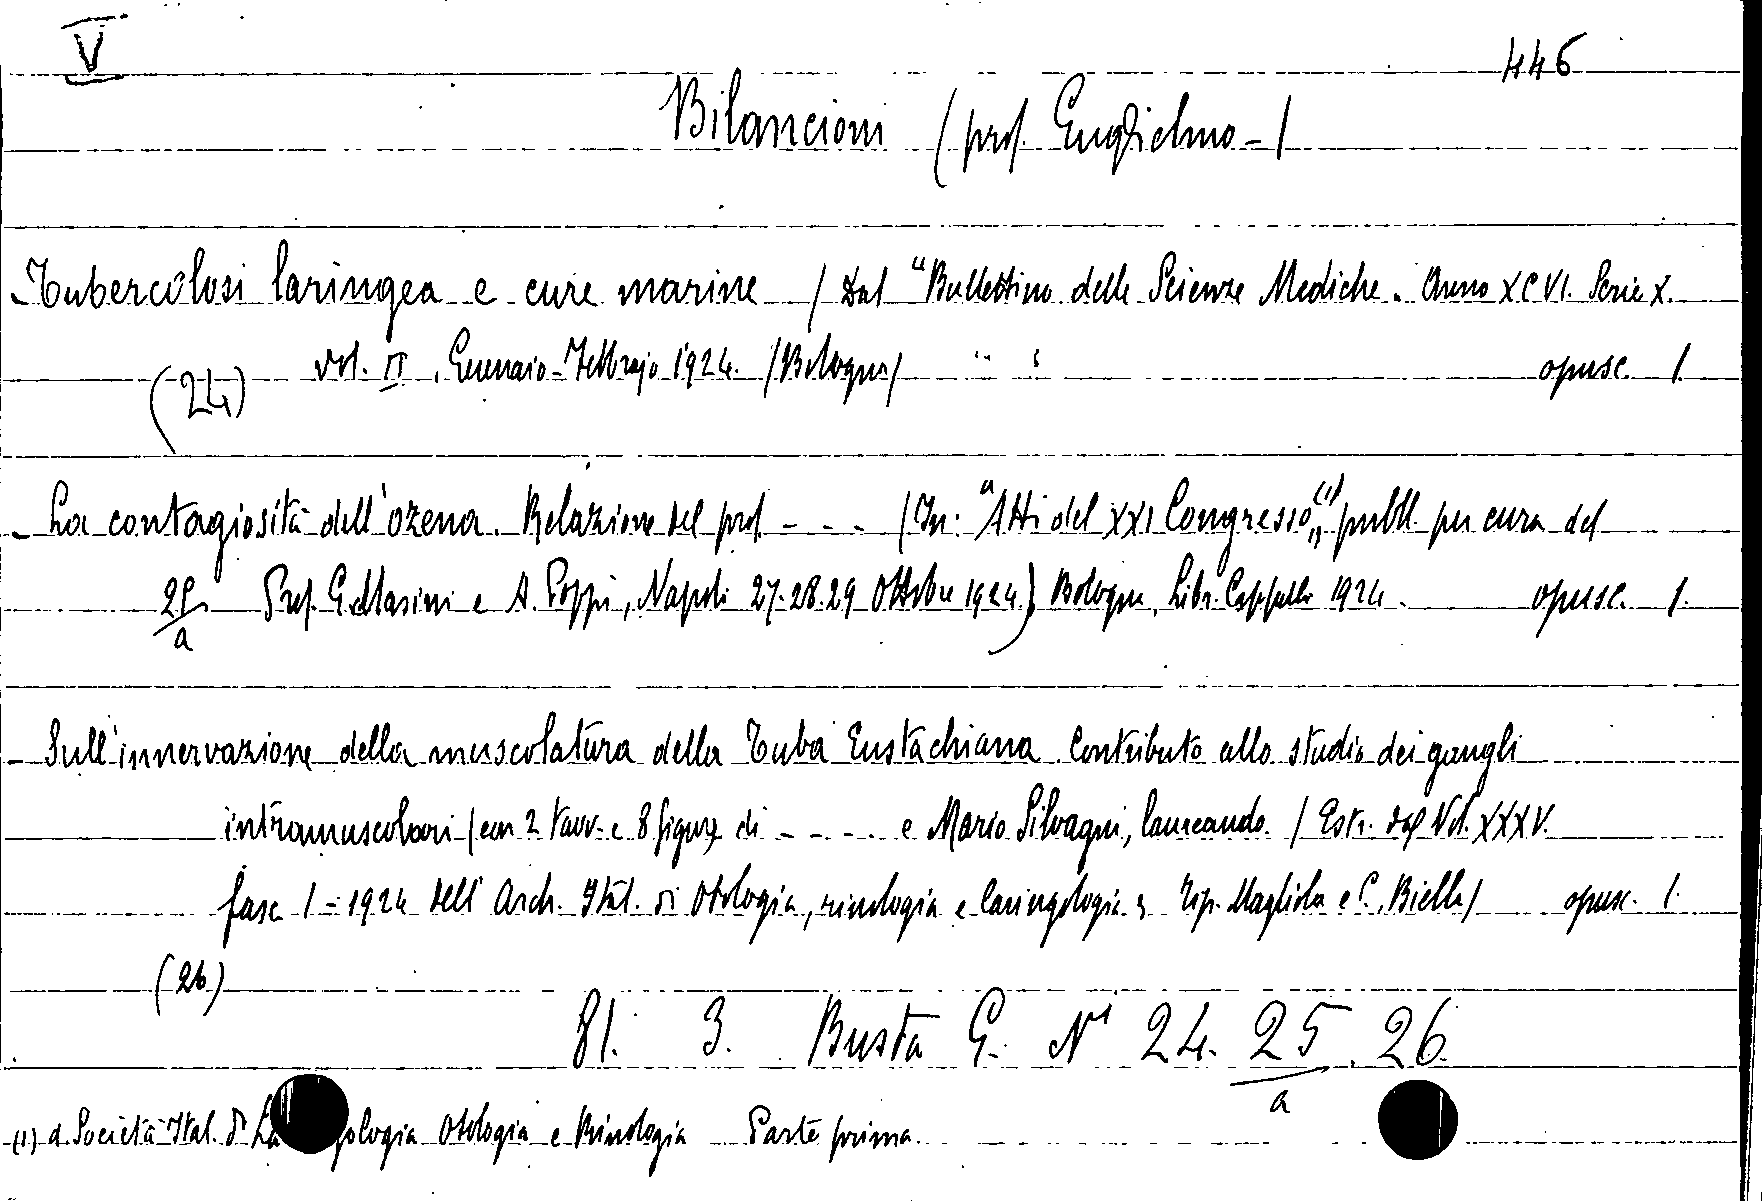 V
446
Bilancioni (prof. Guglielmo - /
- Tubercolosi laringea e cure marine / Dal "Bullettino delle Scienze Mediche. Anno XCVI. Serie X.
vol. II, Gennaio-Febbrajo 1924. /Bologna/ " " " opusc. 1.
(24)
- La contagiosità dell'ozena. Relazione del prof. - - - (In: "Atti del XXI Congresso(1)" pubbl. per cura del
25/a Prof. G. Masini e A. Poppi, Napoli 27.28.29 Ottobre 1924) Bologna, Libr. Cappelli 1924. opusc. 1.
- Sull'innervazione della muscolatura della Tuba Eustachiana. Contributo allo studio dei gangli
intramuscolari / con 2 tavv. e 8 figure di - - - - e Mario Silvagni, laureando. / Estr. dal Vol. XXXV.
fasc 1 - 1924 dell' Arch. Ital. di Otologia, rinologia e laringologia; Tip. Magliola e C., Biella / opusc. 1.
(26)
81. 3. Busta G. Ni 24. 25/a. 26.
(1) d. Società Ital. di Otologia e Rinologia Parte prima.